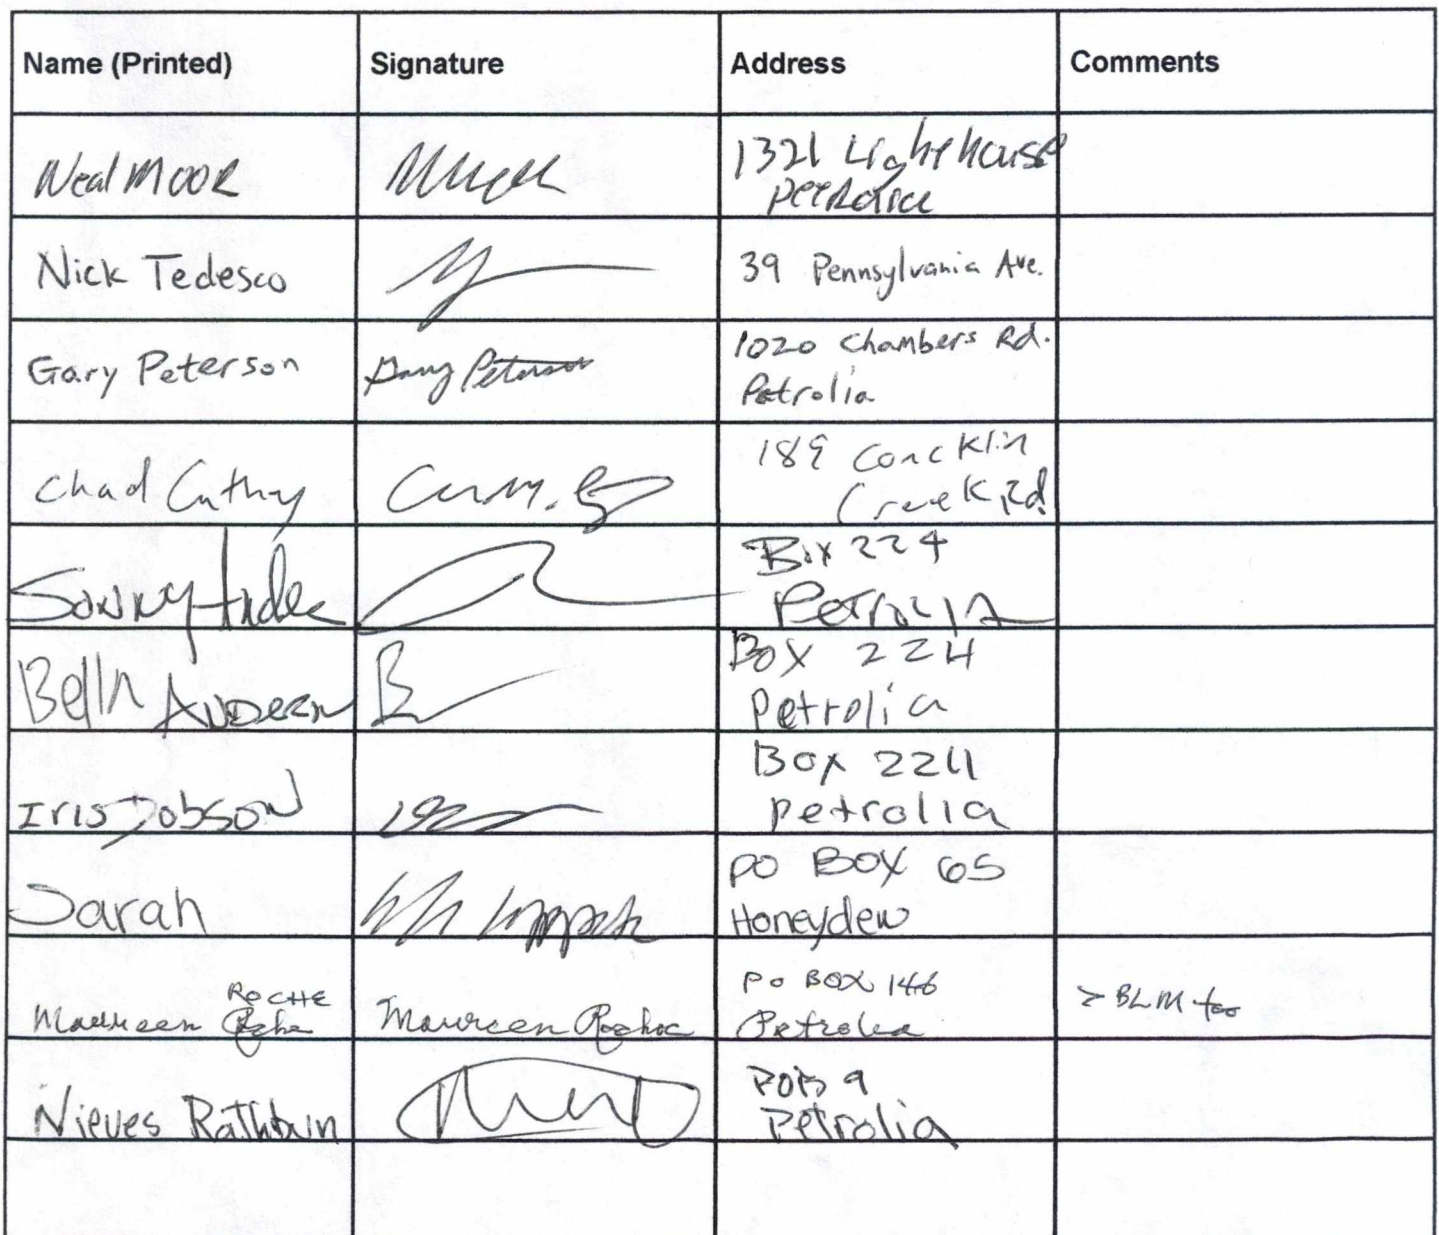 Name (Printed) Signature Address Comments
Neal Moor 1321 Lighthouse
Petrolia
Nick Tedesco 39 Pennsylvania Ave.
Gary Peterson Gary Peterson 1020 Chambers Rd.
Petrolia
Chad Cathey 189 Concklin
Creek Rd
Sonny Box 224
Petrolia
Bella Box 224
Petrolia
Iris Dobson Box 224
Petrolia
Sarah PO BOX 65
Honeydew
ROCHE
Maureen Roche Maureen Roche PO BOX 146
Petrolia
> BLM too
Nieves Rathbun POB 9
Petrolia